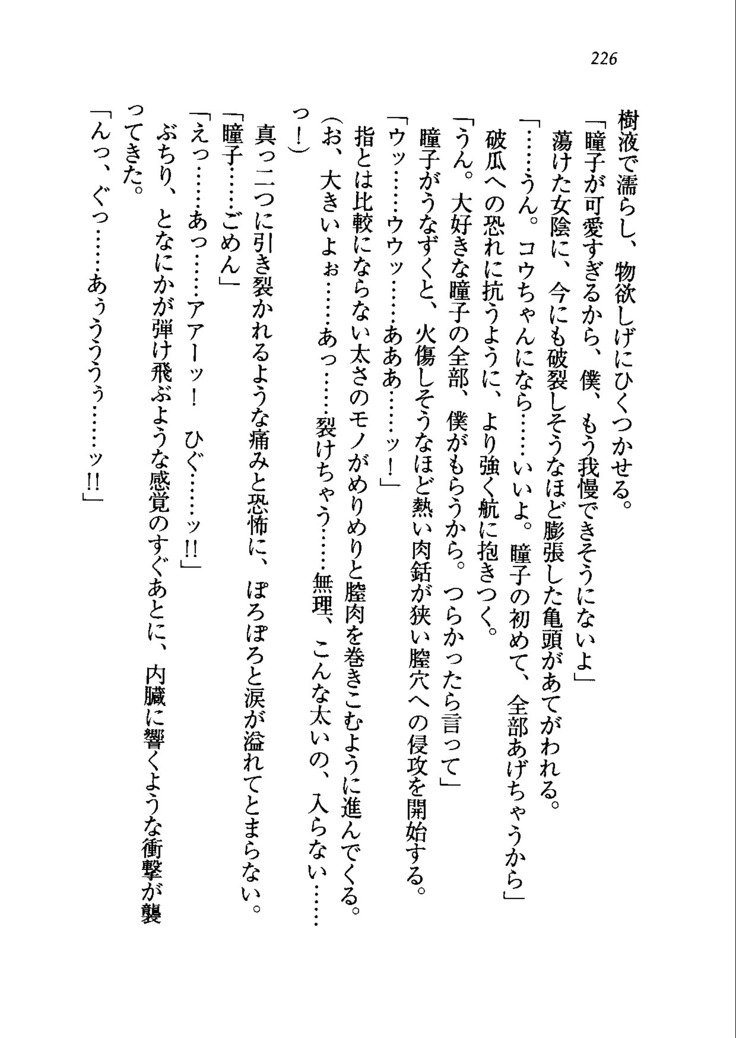 226
樹液で濡らし、物欲しげにひくつかせる。
「瞳子が可愛すぎるから、僕、もう我慢できそうにないよ」
蕩けた女陰に、今にも破裂しそうなほど膨張した亀頭があてがわれる。
「……うん。コウちゃんになら……いいよ。瞳子の初めて、全部あげちゃうから」
破瓜への恐れに抗うように、より強く航に抱きつく。
「うん。大好きな瞳子の全部、僕がもらうから。つらかったら言って」
瞳子がうなずくと、火傷しそうなほど熱い肉銛が狭い膣穴への侵攻を開始する。
「ウッ……ウウッ……あああ……ッ！」
指とは比較にならない太さのモノがめりめりと膣肉を巻きこむように進んでくる。
(お、大きいよぉ……あっ……裂けちゃう……無理、こんな太いの、入らない……
っ！)
真っ二つに引き裂かれるような痛みと恐怖に、ぽろぽろと涙が溢れてとまらない。
「瞳子……ごめん」
「えっ……あっ……アアーッ！　ひぐ……ッ!!」
ぶちり、となにかが弾け飛ぶような感覚のすぐあとに、内臓に響くような衝撃が襲
ってきた。
「んっ、ぐっ……あぅうううぅ……ッ!!」